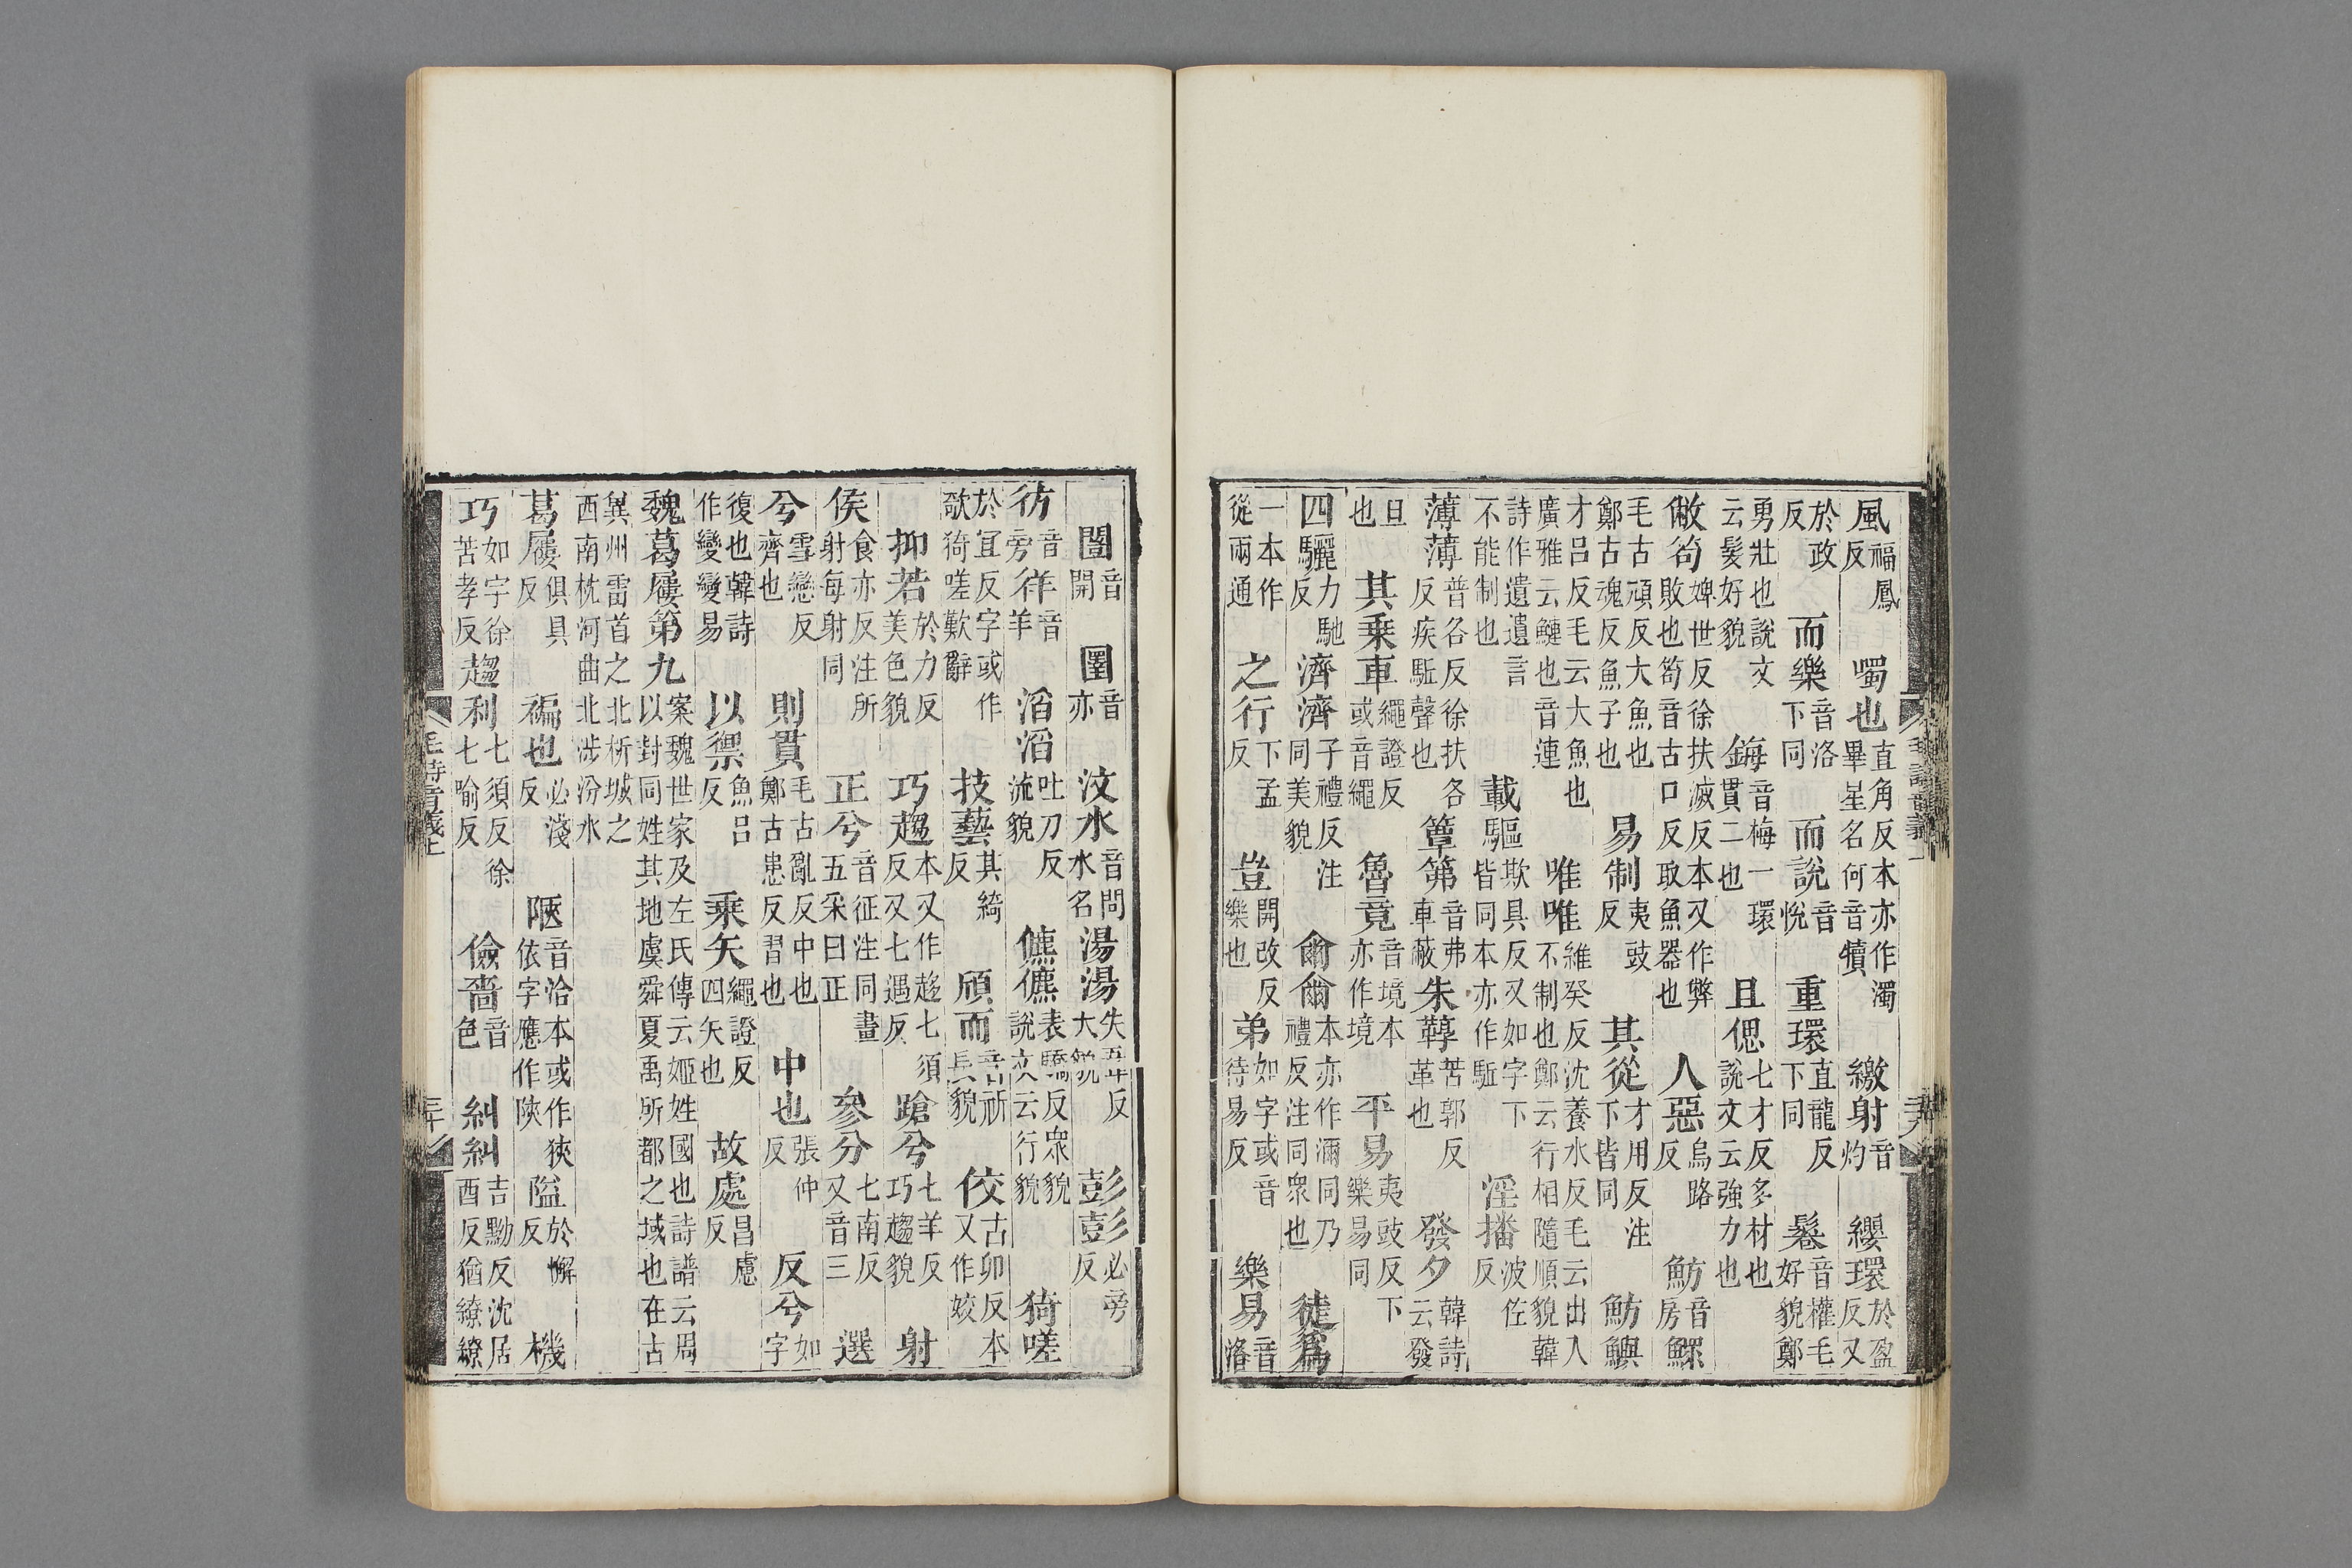 風福鳳反噣也直角反本亦作濁畢星名何音犢繳射音灼纓環於盈反又
於政反而樂音洛下同而說音悅重環直龍反下同鬈音權毛好貌鄭
勇壯也說文云髮好貌鋂音梅一環貫二也且偲七才反多材也說文云強力也
敝笱婢世反徐扶滅反本又作弊敗也笱音古口反取魚器也人惡烏路反魴音房鰥
毛古頑反大魚也鄭古魂反魚子也易制夷豉反其從才用反注下皆同魴鱮
才呂反毛云大魚也廣雅云鰱也音連唯唯維癸反沈養水反毛云出入不制也鄭云行相隨順貌韓
詩作遺遺言不能制也載驅欺具反又如字下皆同本亦作駈淫播波佐反
薄薄普各反徐扶各反疾駈聲也簟笰音弗車蔽朱鞹苦郭反革也發夕韓詩云發
旦也其乗車繩證反或音繩魯竟音境本亦作境平易夷豉反下樂易同
四驪力馳反濟濟子禮反注同美貌爾爾本亦作濔同乃禮反注同眾也徒爲
一本作從兩通之行下孟反豈開改反樂也弟如字或音待易反樂易音洛
闓音開圛音亦汶水音問水名湯湯失章反大貌彭彭必旁反
彷音旁徉音羊滔滔吐刀反流貌儦儦表驕反眾貌說文云行貌猗嗟
於宜反字或作欹猗嗟歎辭技藝其綺反頎而音祈長貌佼古卯反本又作姣
抑若於力反美色貌巧趨本又作趍七須反又七遇反蹌兮七羊反巧趨貌射
侯食亦反注所射每射同正兮音征注同畫五采曰正參分七南反又音三選
兮雪戀反齊也則貫毛古亂反中也鄭古患反習也中也張仲反反兮如字
復也韓詩作變變易以禦魚呂反乗矢繩證反四矢也故處昌慮反
魏葛屨第九案魏世家及左氏傳云姬姓國也詩譜云周以封同姓其地虞舜夏禹所都之域也在古
冀州雷首之北析城之西南枕河曲北涉汾水
葛屨俱具反褊也必淺反陿音洽本或作狹依字應作陝隘於懈反機
巧如字徐苦孝反趨利七須反徐七喻反儉嗇音色糾糾吉黝反沈居酉反猶繚繚